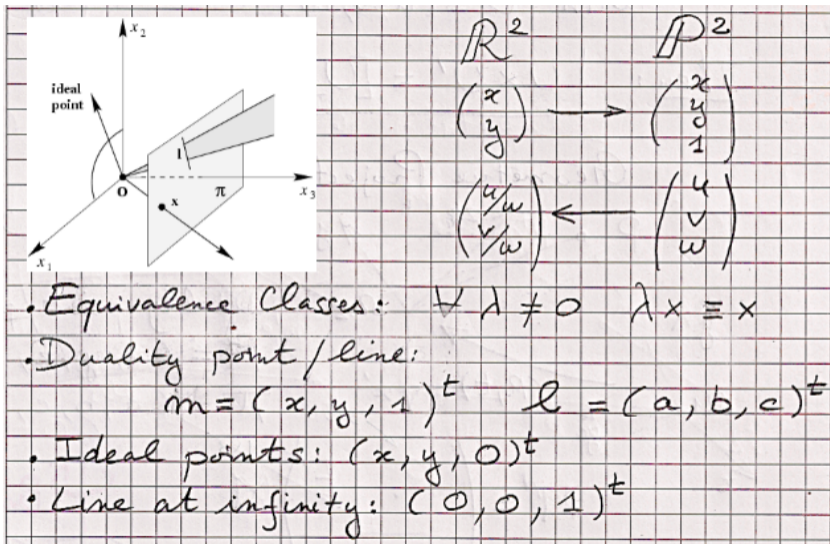 x₂
ideal
point
l
O
π
x₃
x
x₁
ℝ² ℙ²
(x y) → (x y 1)
(u/w v/w) ← (u v w)
• Equivalence Classes: ∀ λ ≠ 0 λx ≡ x
• Duality point/line:
m = (x, y, 1)ᵗ l = (a, b, c)ᵗ
• Ideal points: (x, y, 0)ᵗ
• Line at infinity: (0, 0, 1)ᵗ